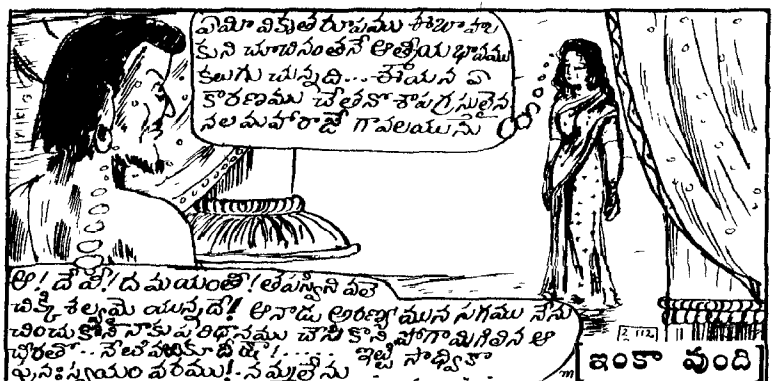 ఏమీ వికృతరూపము ఈబాహు
కుని చూచినంతనే ఆత్మీయ భావము
కలుగు చున్నది... ఈయన ఏ
కారణము చేతనో శాపగ్రస్తులైన
నలమహారాజే గావలయును
ఆ! దేవీ! దమయంతీ! తపస్విని వలె
చిక్కి శల్యమై యున్నదే! ఆనాడు అరణ్యమున సగము నేను
చించుకొని నాకు పరిధానము చేసి కొని పోగా మిగిలిన ఆ
చీరతో.. నేటి వరకూ ..... ఇట్టి సాధ్వి కా
పునఃస్వయం వరము! నమ్మలేను
ఇంకా వుంది